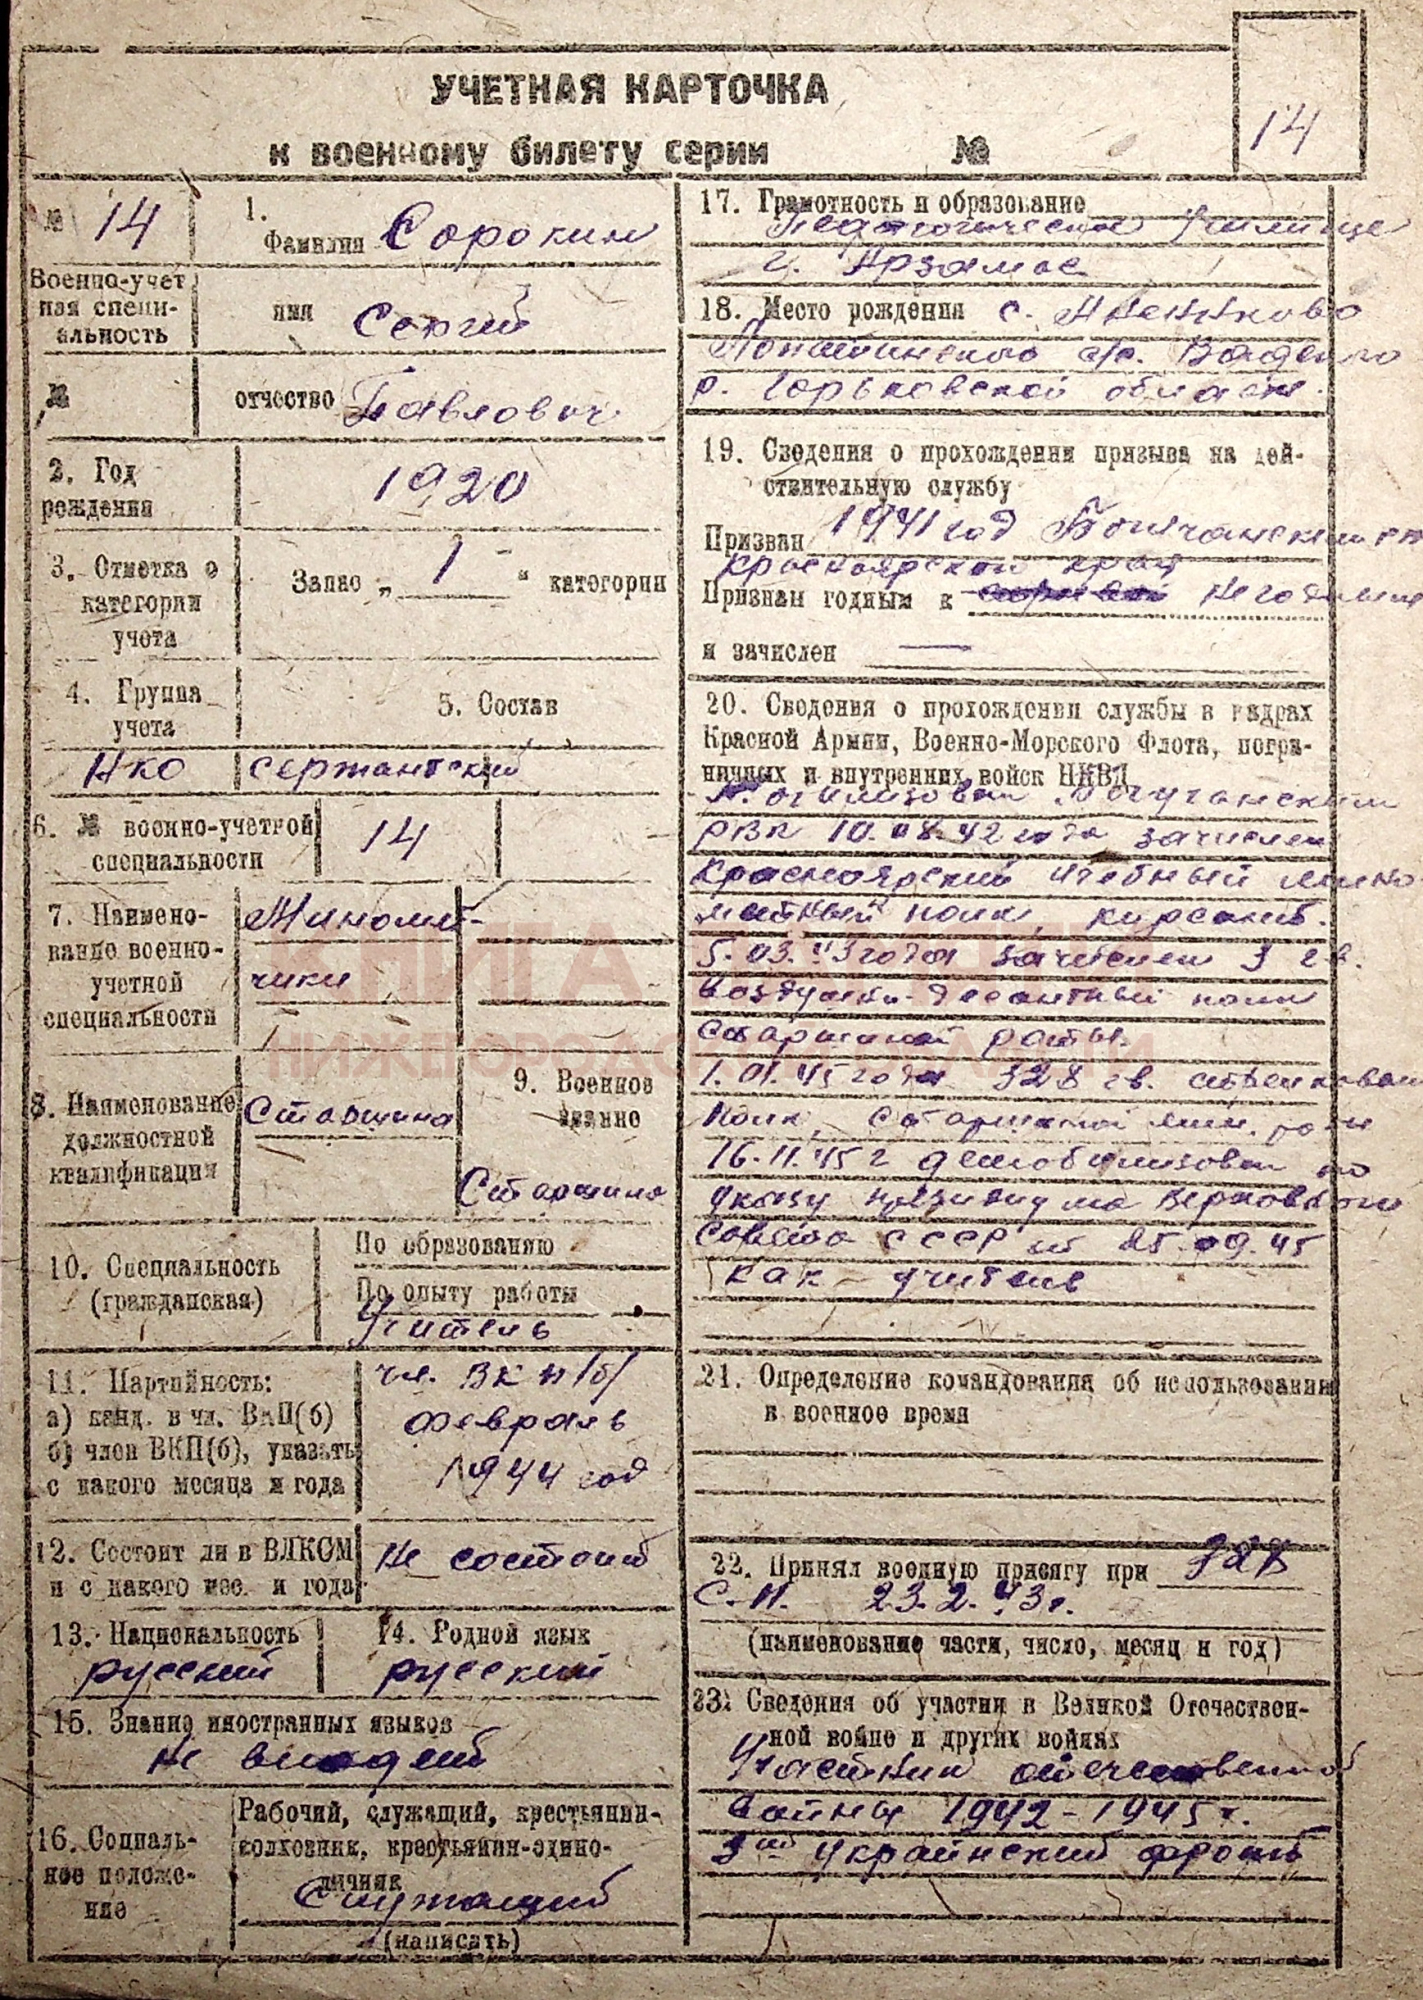 УЧЕТНАЯ КАРТОЧКА
к военному билету серии №
14
№ 14
1. Фамилия Сорокин
Военно-учет
ная специ-
альность
имя Сергей
№
отчество Павлович
2. Год
рождения
1920
3. Отметка о
категории
учета
Запас „ 1 “ категории
4. Группа
учета
5. Состав
НКО сержантский
6. № военно-учетной
специальности
14
7. Наимено-
вание военно-
учетной
специальности
Миномет-
чики
8. Наименование
должностной
квалификации
Старшина
9. Военное
звание
Старшина
10. Специальность
(гражданская)
По образованию
По опыту работы
Учитель
11. Партийность:
а) канд. в чл. ВКП(б)
б) член ВКП(б), указать
с какого месяца и года
чл. ВКП/б/
февраль
1944 год
12. Состоит ли в ВЛКСМ
и с какого мес. и года
Не состоит
13. Национальность
русский
14. Родной язык
русский
15. Знание иностранных языков
Не владеет
16. Социаль-
ное положе-
ние
Рабочий, служащий, крестьянин-
колхозник, крестьянин-едино-
личник
Служащий
(написать)
17. Грамотность и образование
Педагогическое училище
г. Арзамас
18. Место рождения с.
с/с. Вадского
р. Горьковской области.
19. Сведения о прохождении призыва на дей-
ствительную службу
Призван 1941 год
Красноярский край
Признан годным к
и зачислен —
20. Сведения о прохождении службы в кадрах
Красной Армии, Военно-Морского Флота, погра-
ничных и внутренних войск НКВД
РВК 10.08.42 года зачислен
Красноярский учебный мино-
метный полк, курсант.
5.03.43 года зачислен 3 гв.
воздушно-десантный полк
старшиной роты.
1.01.45 года 328 гв. стрелковый
полк, старшиной мин. роты
16.11.45 г демобилизован по
указу президиума Верховного
Совета СССР от 25.09.45
как учитель
21. Определение командования об использовании
в военное время
22. Принял военную присягу при 328
С.П. 23.2.43г.
(наименование части, число, месяц и год)
23. Сведения об участии в Великой Отечествен-
ной войне и других войнах
Участник отечественной
войны 1942-1945г.
3ий украинский фронт
КНИГА ПАМЯТИ
НИЖЕГОРОДСКОЙ ОБЛАСТИ